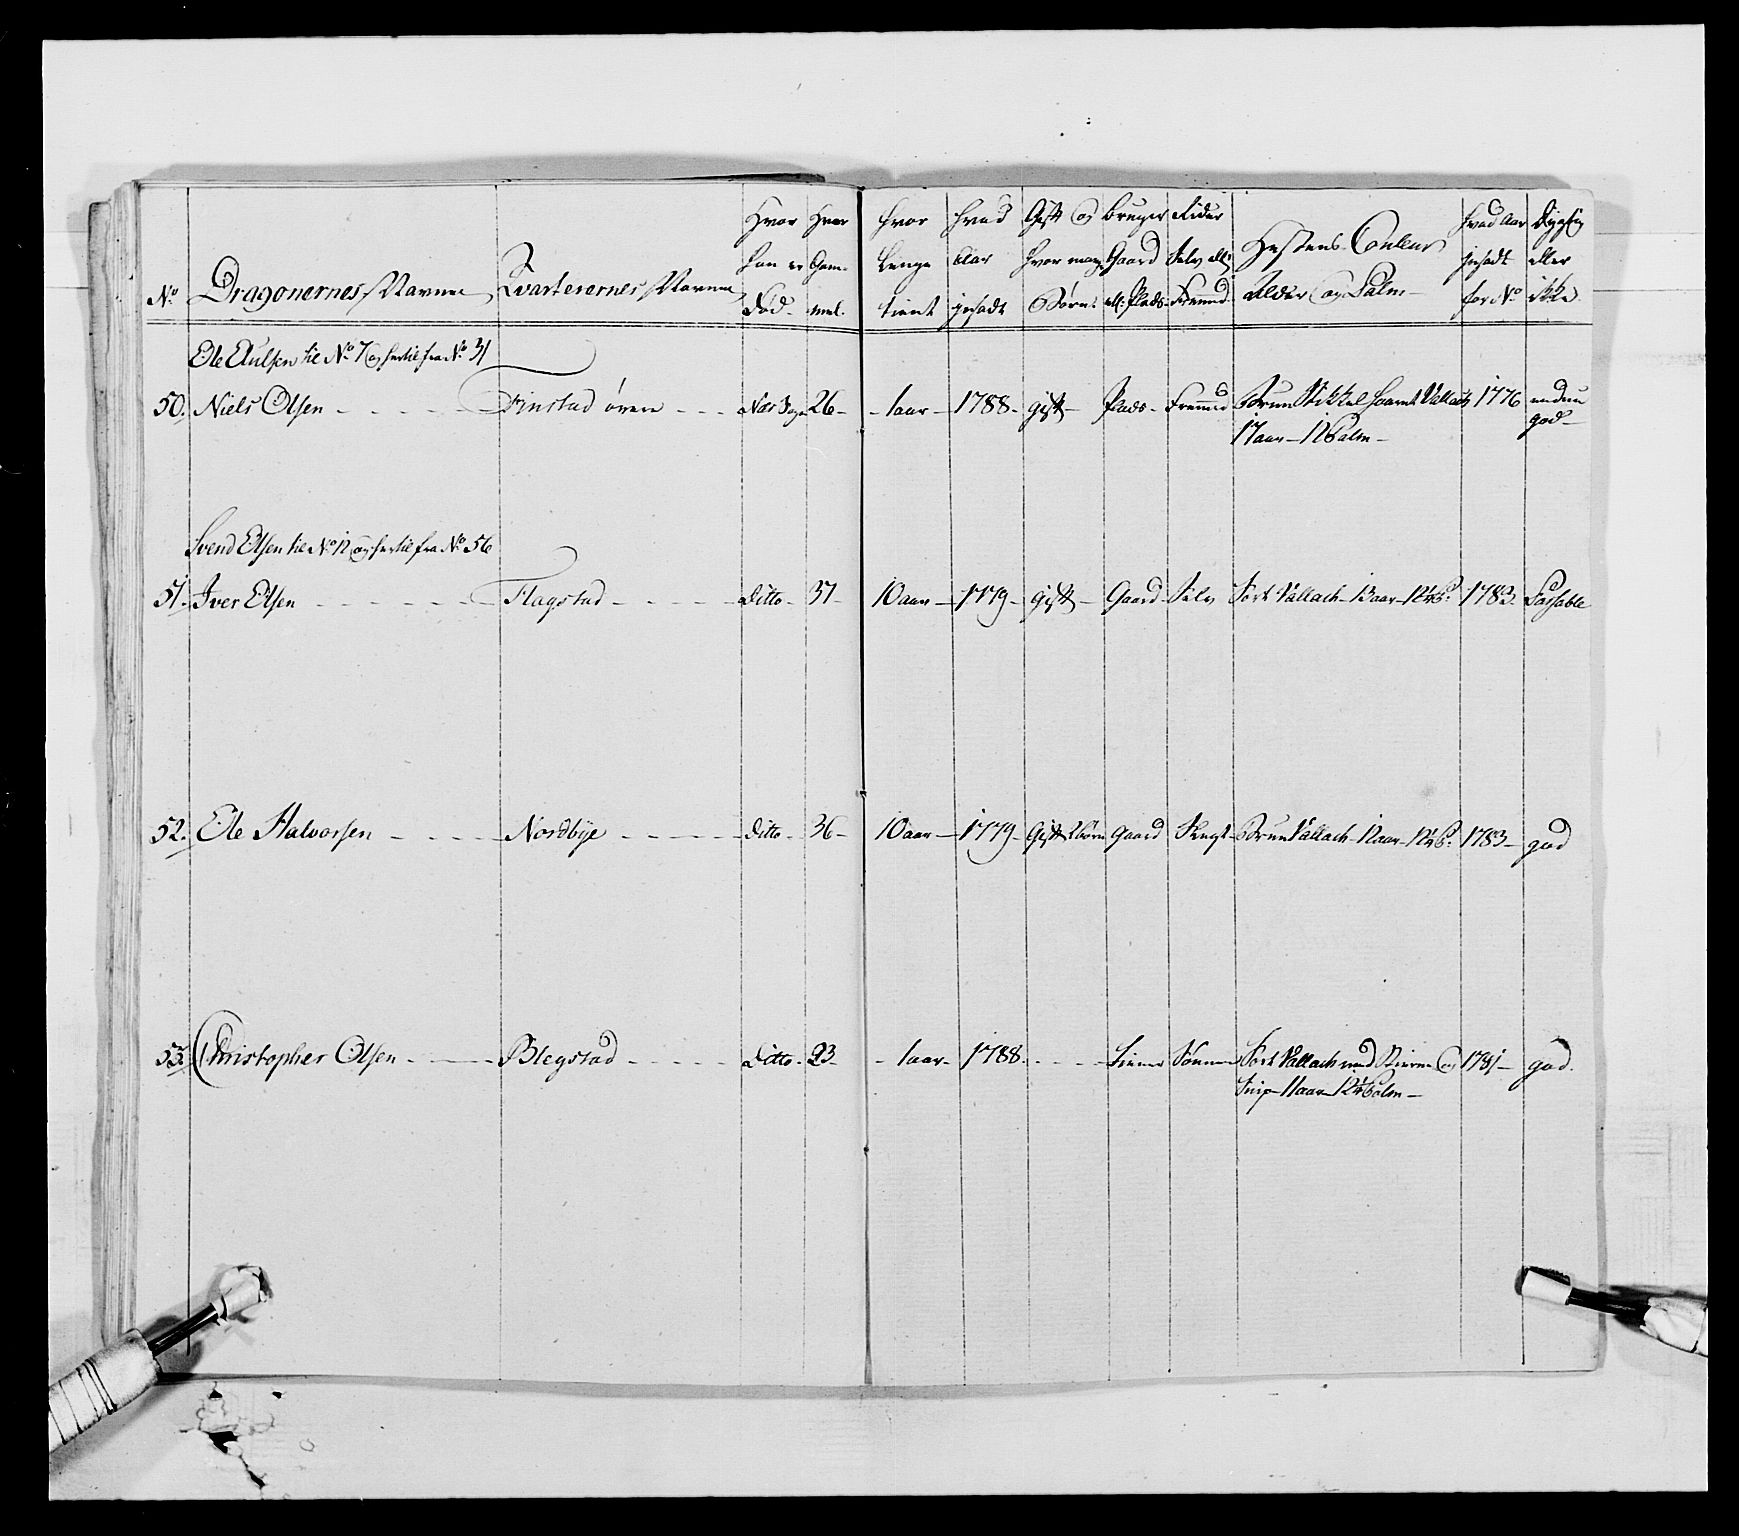 No Dragonernes Navne Qvarterernes Navne Hvor han er Død. Hvor Gam- mel. hvor Lenge tient hvad Aar gesadt Gift og hvor mange Børn Bruger Gaard ell: Plads Rider Selv ell: Fremmed Hestens Couleur Alder og Palm hvad Aar gesadt for No Dygtig eller ikke
Ole Aulsen til No 7 og hertil fra No 31
50. Niels Olsen Finstad øvere Næs 26 1 aar 1788 gift Plads Fremmed Brun Vallach 1776 endnu
17 aar 12 Palm god
Svend Olsen til No 12 og hertil fra No 56
51. Iver Olsen Flagstad Ditto 37 10 aar 1779 gift Gaard Selv Sort Vallach 13 aar 1783 Passable
52. Ole Halvorsen Nordbye ditto 36 10 aar 1779 Gift børn Gaard Knegt Brun Vallach 12 aar 1783 god
53. Christopher Olsen Blegstad Ditto 23 1 aar 1788 Tiener Sønnen Sort Vallach med Stierne og 1781 god.
Snip 11 aar 12¼ Palm